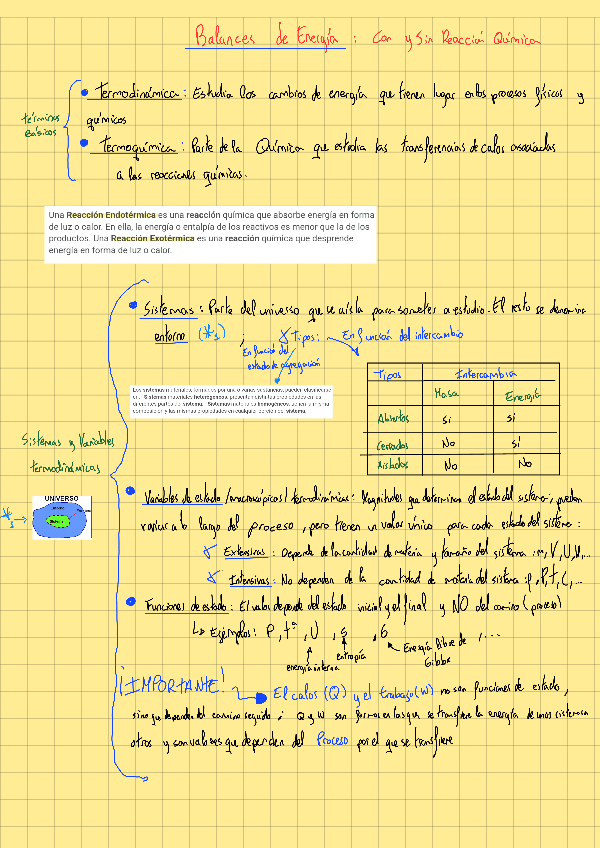 Balances de Energía : Con y Sin Reacción Química
términos básicos
Termodinámica : Estudia los cambios de energía que tienen lugar en los procesos físicos y
químicos
Termoquímica : Parte de la Química que estudia las transferencias de calor asociadas
a las reacciones químicas.
Una Reacción Endotérmica es una reacción química que absorbe energía en forma
de luz o calor. En ella, la energía o entalpía de los reactivos es menor que la de los
productos. Una Reacción Exotérmica es una reacción química que desprende
energía en forma de luz o calor.
Sistemas y Variables
termodinámicas
Sistemas : Parte del universo que se aísla para someter a estudio. El resto se denomina
entorno (*1) ; * Tipos: En función del intercambio
En función del
estado de agregación
Los sistemas materiales, formados por una o varias sustancias, pueden clasificarse
en: Sistemas materiales heterogéneos: presentan distintas propiedades en las
diferentes partes del sistema. Sistemas materiales homogéneos: tienen la misma
composición y las mismas propiedades en cualquier porción del sistema.
Tipos Intercambia
Masa Energía
Abiertos Sí Sí
Cerrados No Sí
Aislados No No
*1
UNIVERSO
Sistema
Variables de estado / macroscópicas / termodinámicas : Magnitudes que determinan el estado del sistema, pueden
variar a lo largo del proceso, pero tienen un valor único para cada estado del sistema :
* Extensivas : Depende de la cantidad de materia y tamaño del sistema : m, V, U, H,...
* Intensivas : No dependen de la cantidad de materia del sistema : ρ, P, T, C, ...
Funciones de estado : El valor depende del estado inicial y el final y NO del camino (proceso)
Ejemplos : P, tª, U, S, G, ...
energía interna
entropía
Energía libre de
Gibbs
¡IMPORTANTE! El calor (Q) y el trabajo (W) no son funciones de estado,
sino que dependen del camino seguido ; Q y W son formas en las que se transfiere la energía de unos sistemas a
otros y son valores que dependen del Proceso por el que se transfiere